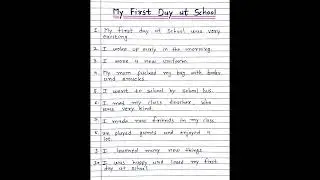 My First Day at School
1. My first day at school was very
exciting.
2. I woke up early in the morning.
3. I wore a new uniform.
4. My mum packed my bag with books
and snacks.
5. I went to school by school bus.
6. I met my class teacher who
was very kind.
7. I made new friends in my class.
8. We played games and enjoyed a
lot.
9. I learned many new things.
10. I was happy and loved my first
day at school